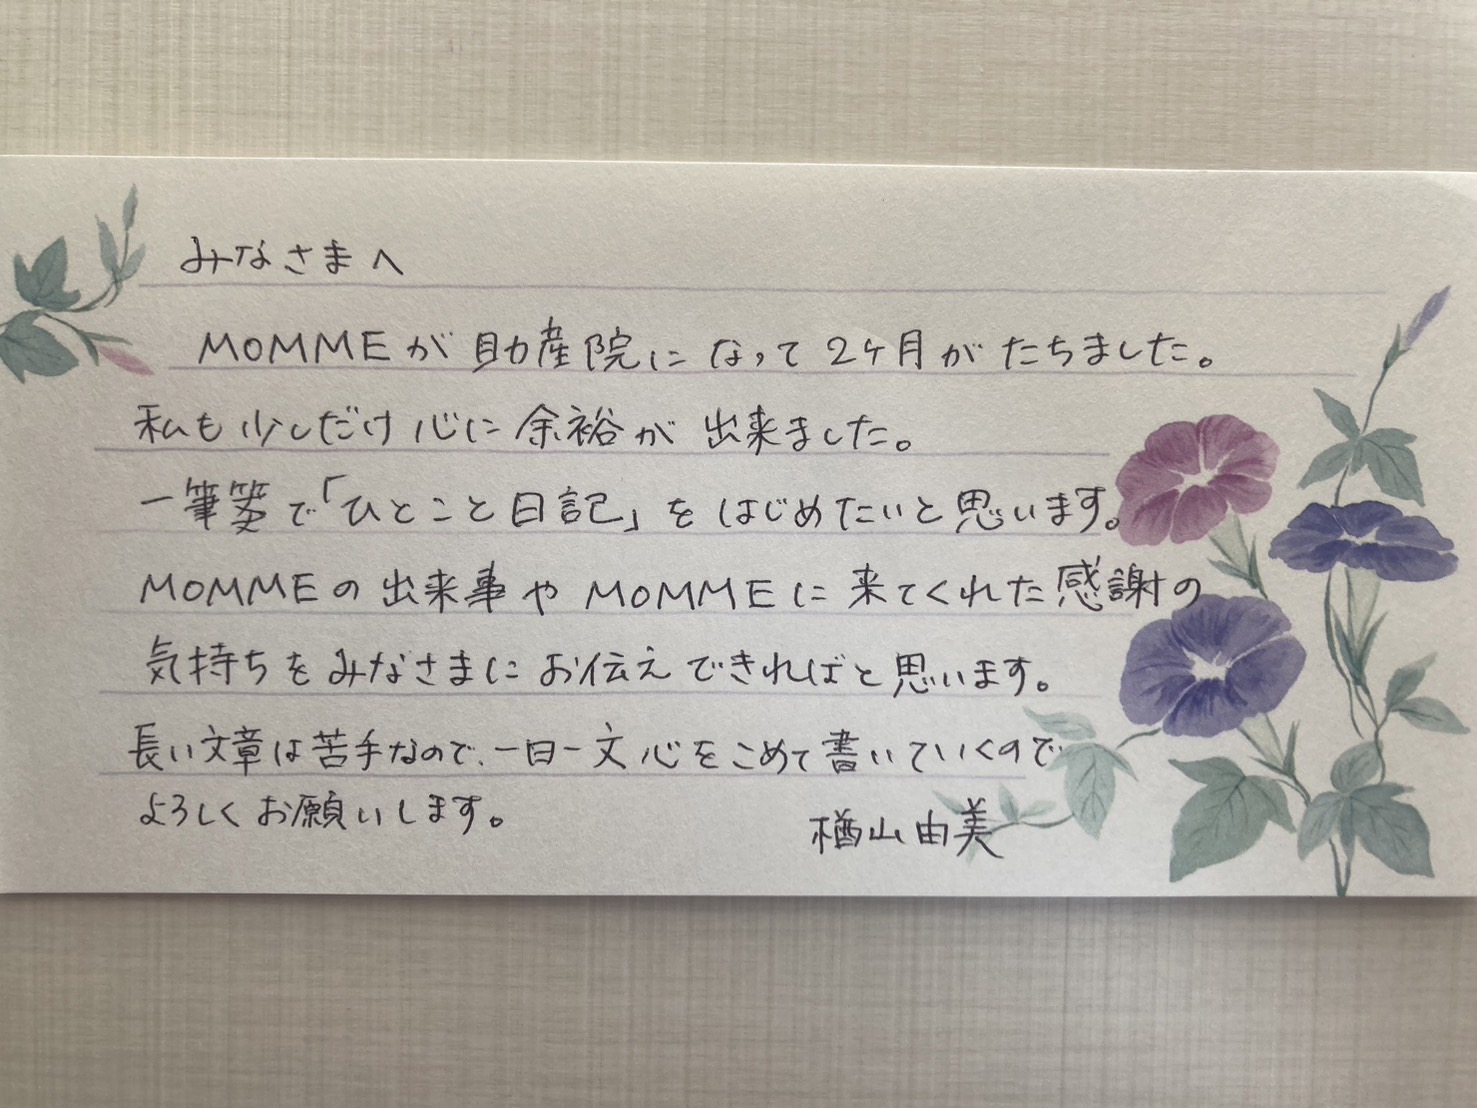 みなさまへ
MOMMEが助産院になって2ケ月がたちました。
私も少しだけ心に余裕が出来ました。
一筆箋で「ひとこと日記」をはじめたいと思います。
MOMMEの出来事やMOMMEに来てくれた感謝の
気持ちをみなさまにお伝えできればと思います。
長い文章は苦手なので、一日一文心をこめて書いていくので
よろしくお願いします。
楢山由美